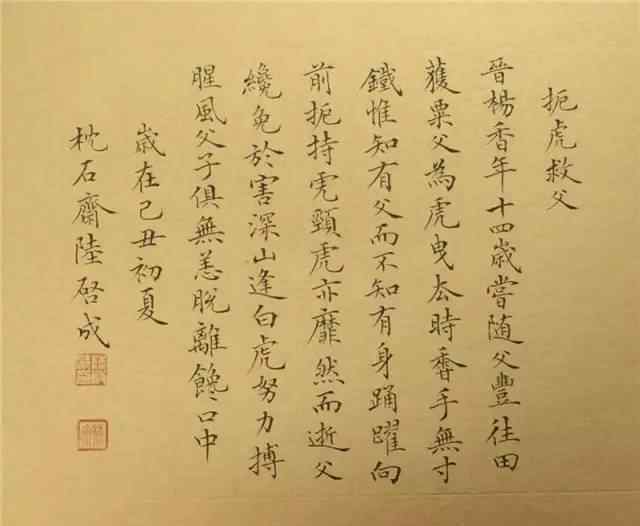 扼虎救父
晉楊香年十四歲嘗随父豐往田
獲粟父為虎曳去時香手無寸
鐵惟知有父而不知有身踊躍向
前扼持虎頸虎亦靡然而逝父
纔免於害深山逢白虎努力搏
腥風父子俱無恙脫離饞口中
歲在己丑初夏
枕石齋陸啓成